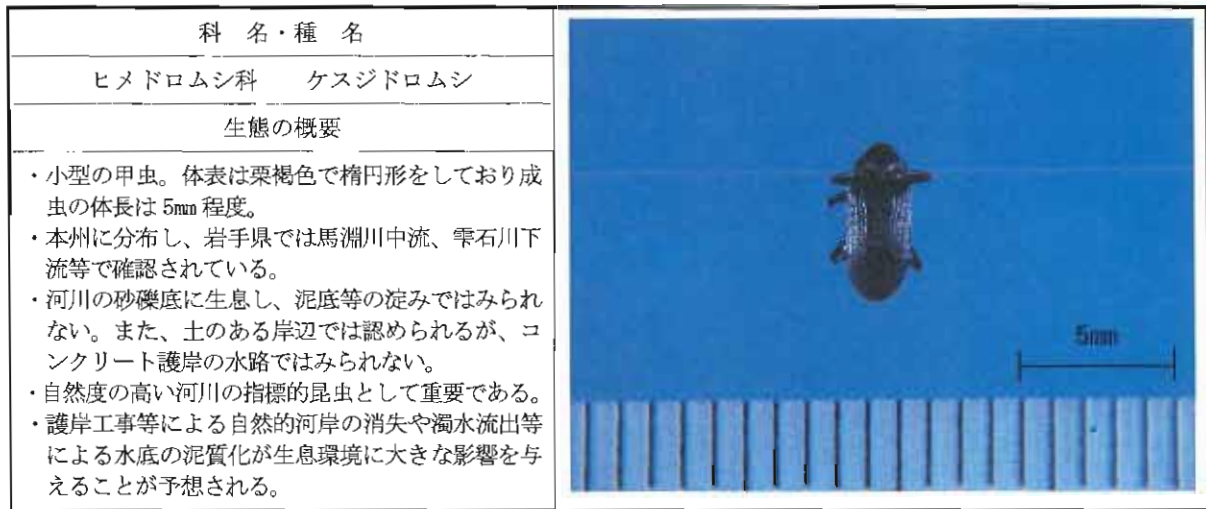 科 名・種 名
ヒメドロムシ科 ケスジドロムシ
生態の概要
・小型の甲虫。体表は栗褐色で楕円形をしており成
虫の体長は 5㎜ 程度。
・本州に分布し、岩手県では馬淵川中流、雫石川下
流等で確認されている。
・河川の砂礫底に生息し、泥底等の淀みではみられ
ない。また、土のある岸辺では認められるが、コ
ンクリート護岸の水路ではみられない。
・自然度の高い河川の指標的昆虫として重要である。
・護岸工事等による自然的河岸の消失や濁水流出等
による水底の泥質化が生息環境に大きな影響を与
えることが予想される。
5mm